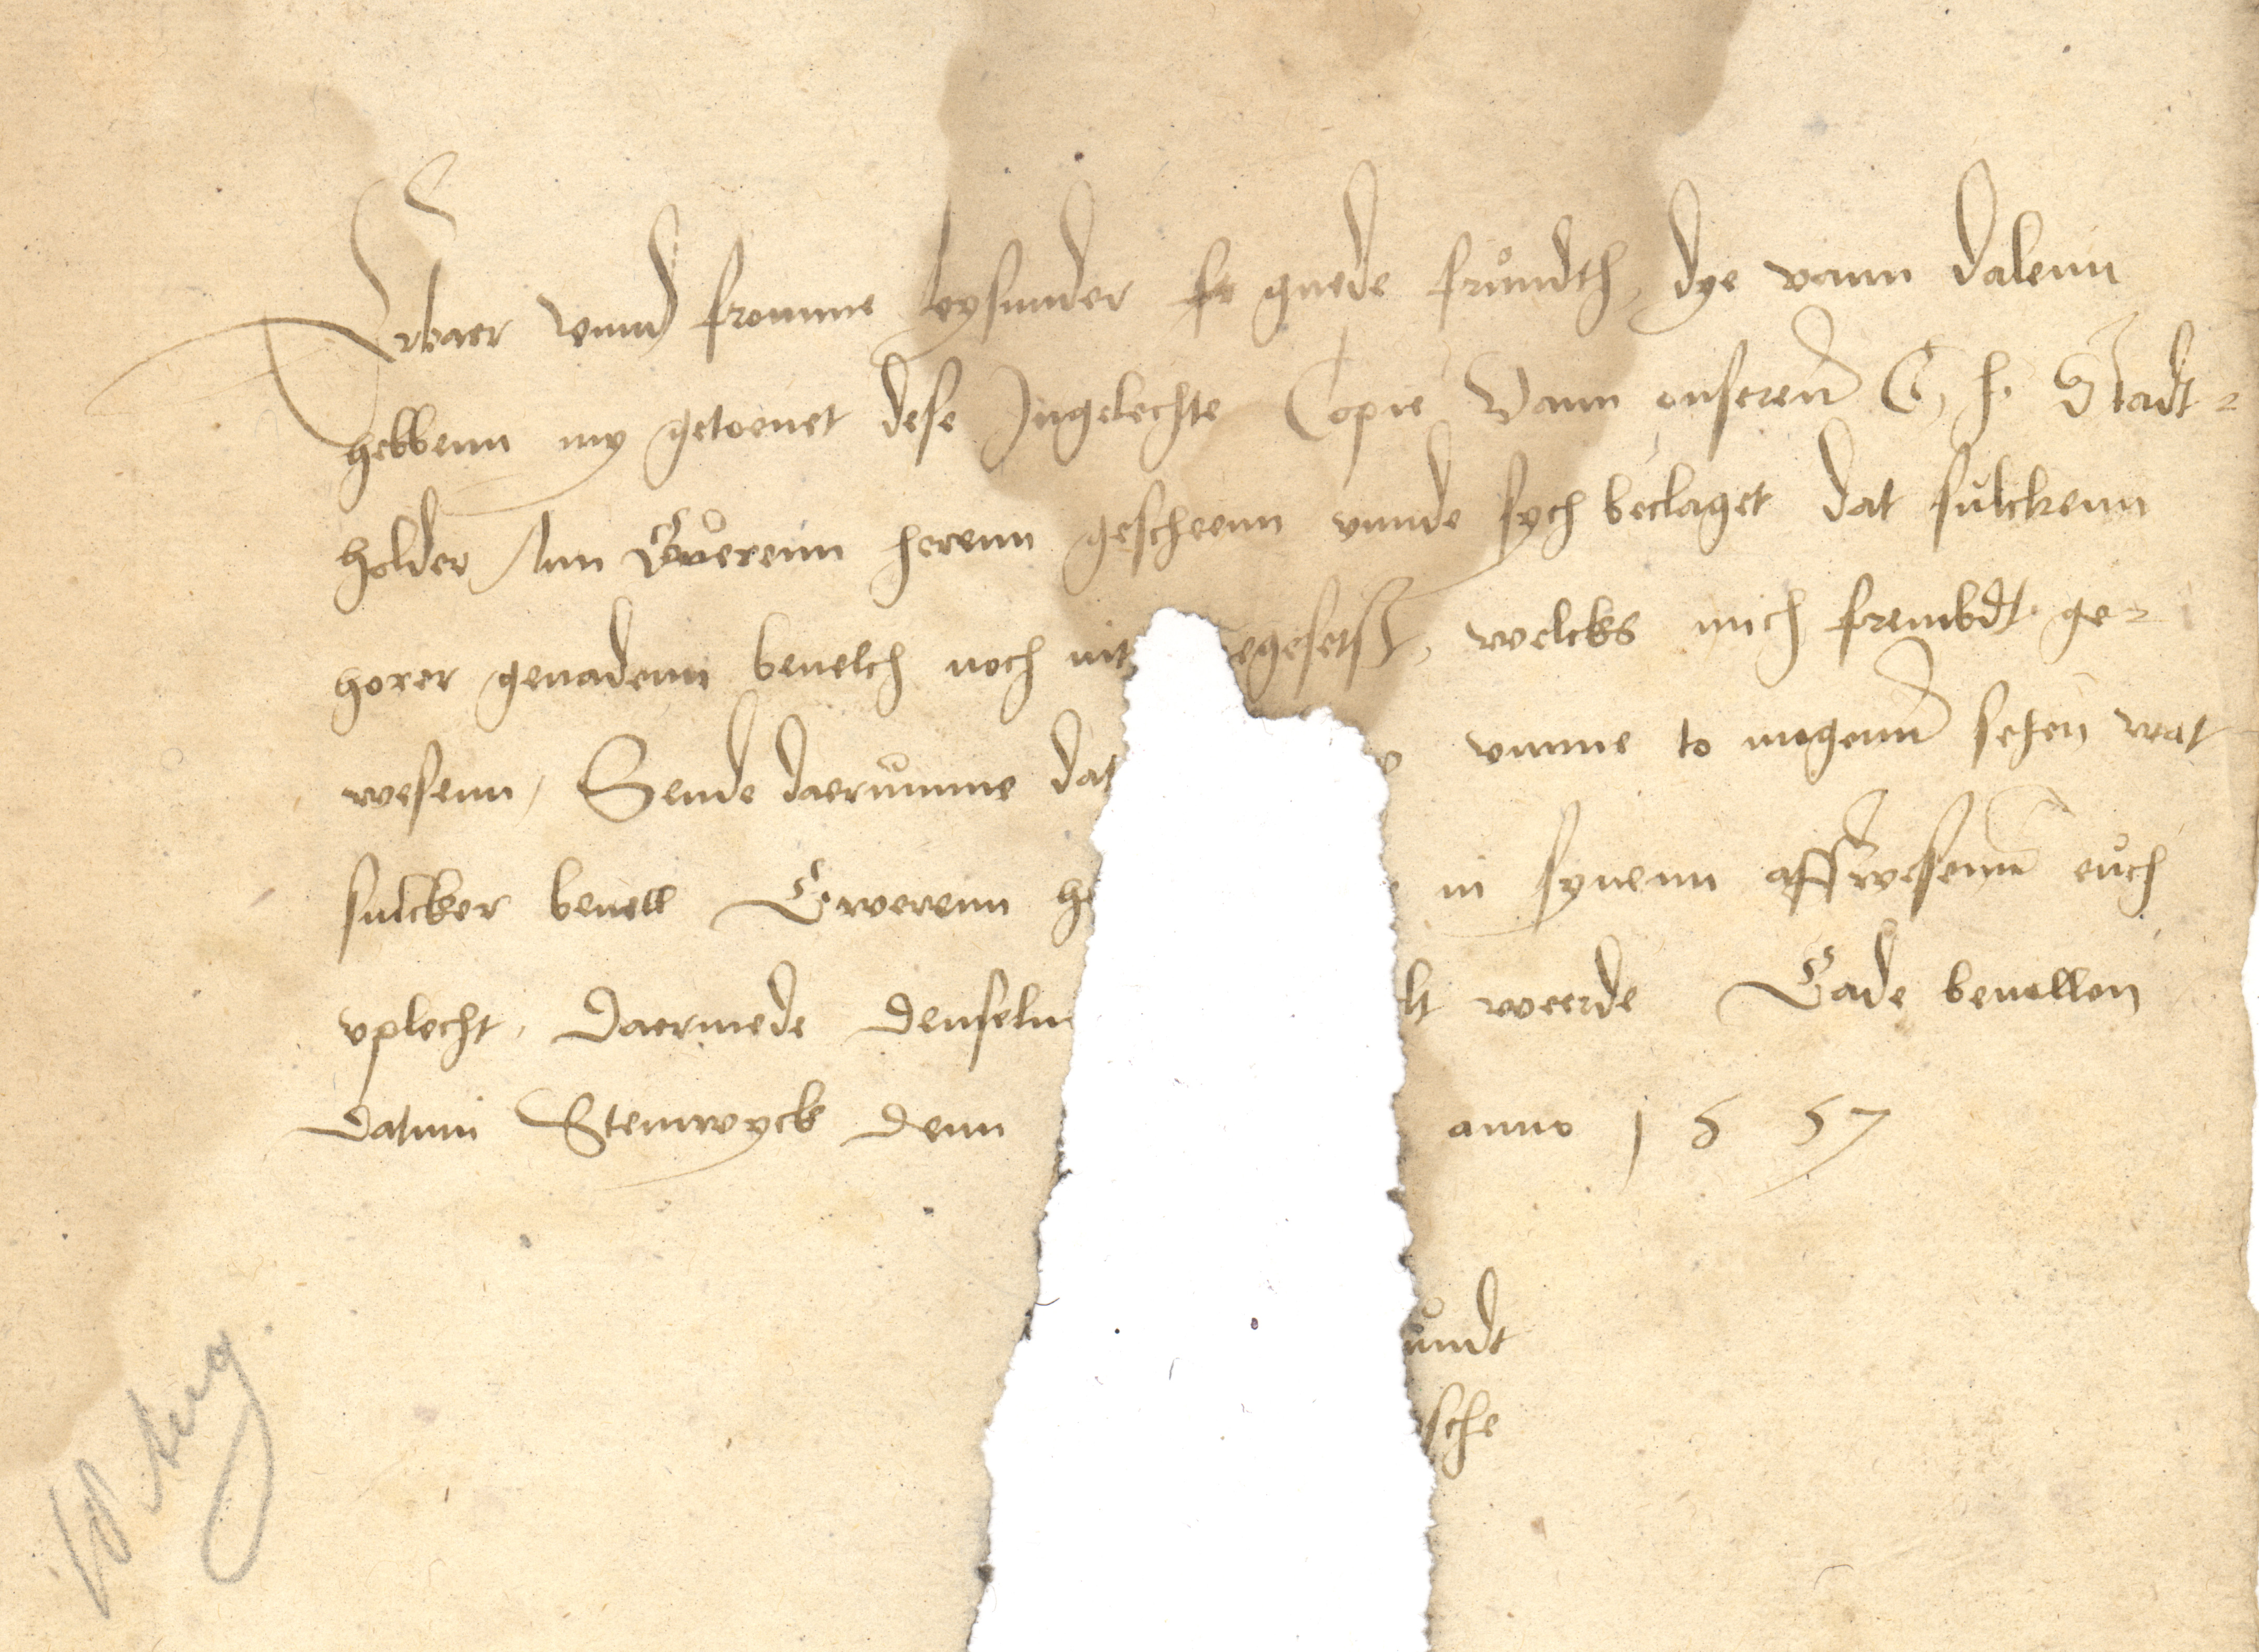 Erbaer vnnd fromme bysunder fr guede frůndth, dye vann Dalenn
hebbenn my getoenet dese Ingelechte Copie Vann onserenn G. h. Stadt-
holder Ann Eůerenn herenn gescheenn vnnde sych beclaget dat sulckenn
horer genadenn beuelch noch nit egesetst, welcks mich frembdt ge-
wesenn, Sende daerumme dat vmme to mogenn sehen wat
sulcker beuell Ewerenn he in synenn affwesenn euch
vplecht, Daermede denselu lt weerde Gade beuollen
Datum Stenwyck denn anno 1557
undt
sche
10 Aug.